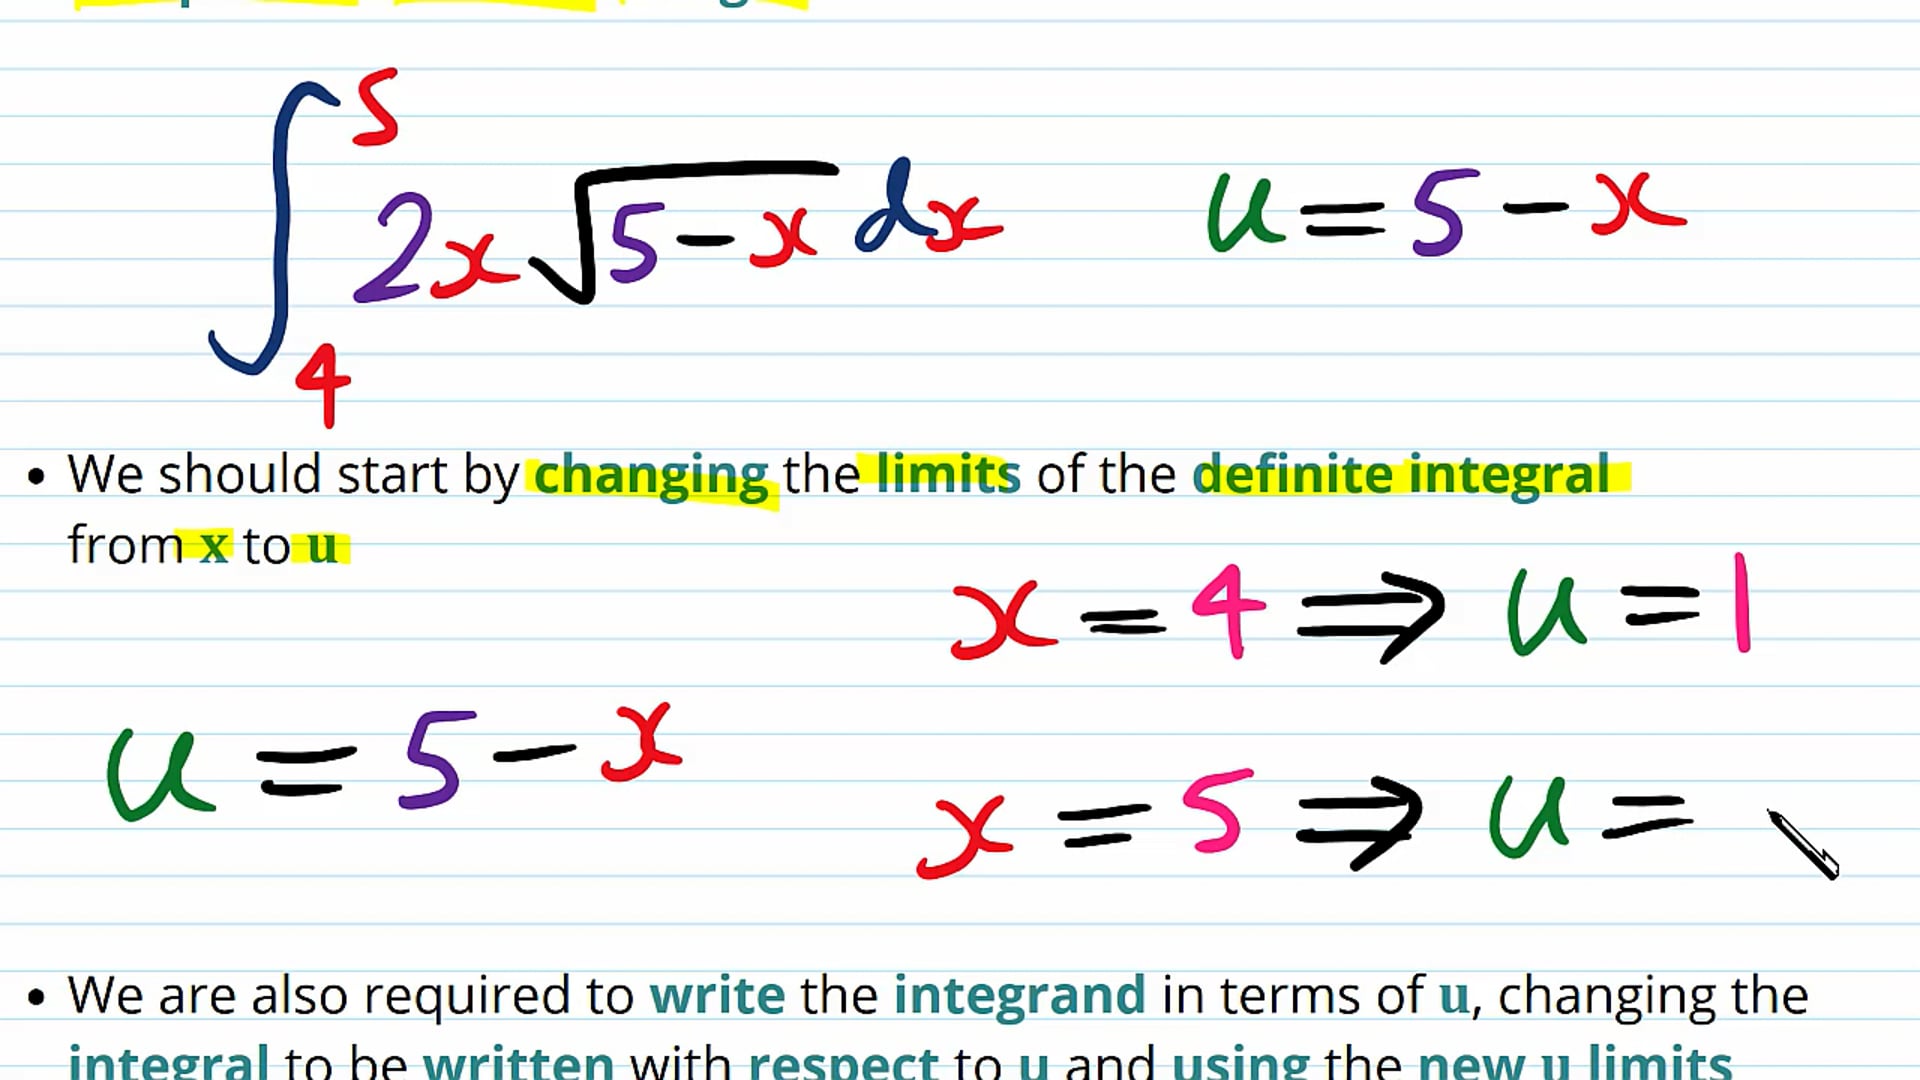 ∫₄⁵ 2x√(5-x) dx    u = 5 - x
• We should start by changing the limits of the definite integral
from x to u
x = 4 ⇒ u = 1
u = 5 - x
x = 5 ⇒ u =
• We are also required to write the integrand in terms of u, changing the
integral to be written with respect to u and using the new u limits